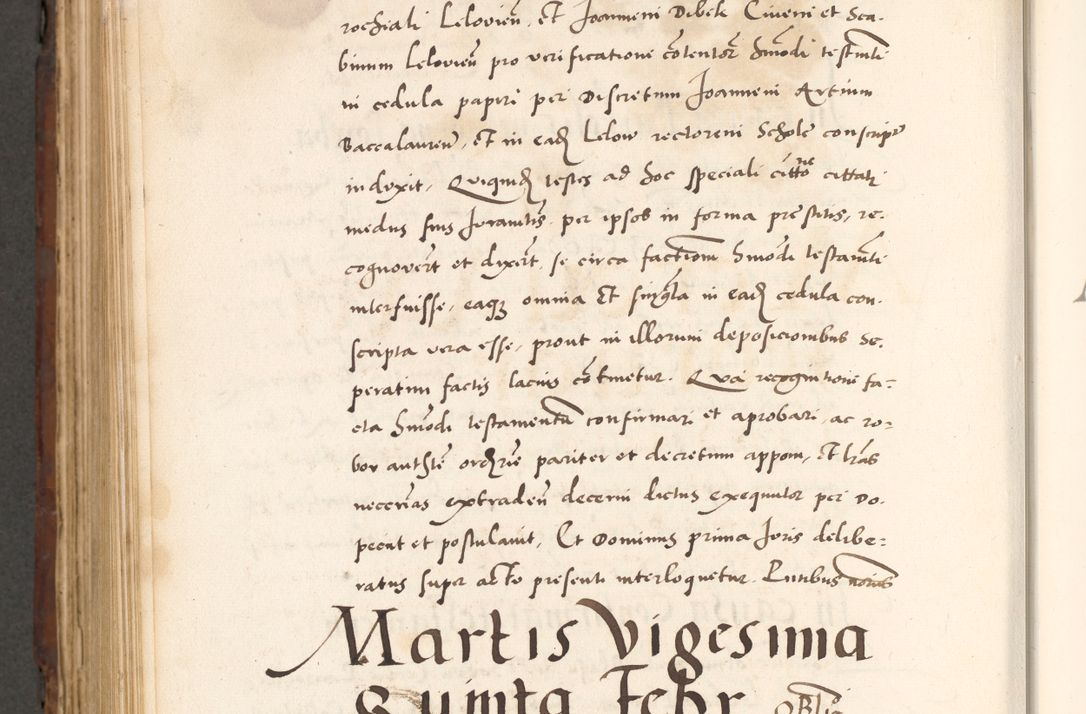 rochiali Lelovien, et Joannem Dibek Civem et Sca-
binum Leloviens pro verificatione contentor hmodi testamti
in cedula papiri per Discretum Joannem Artium
Baccalaureu, et in eade Lelow rectorem Schole conscripte
induxit, Quiquidem testes ad hoc speciali citto citati
medus suis Juramtis per ipsos in forma prestitis, re-
cognovert et dixert, se circa factiom hmodi testamti
interfuisse, eaque omnia et singla in eade cedula con-
scripta vera esse, prout in illorum deposicionibus se-
peratim factis lacius continetur. Qua recognitione fa-
cta hmodi testamentu confirmari et aprobari, ac ro-
bor authte ordrie pariter et decretum apponi, et lras
necerias extraden decerni dictus exequutor peri Do-
peciit et postulavit, Et Dominus prima Juris delibe-
ratus super acto presenti interloquetur. Pntibus notariis
Martis Vigesima
Quinta Febr